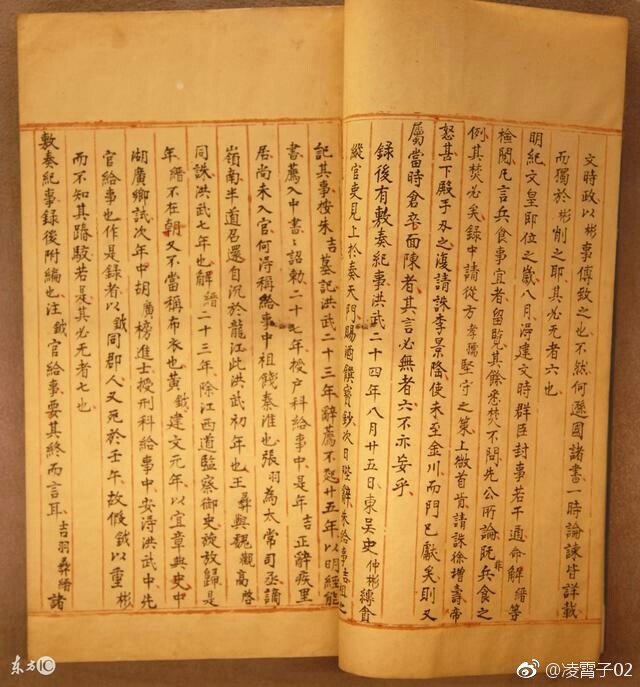 文時政以彬事傅致之也不然何遜國諸書一時論諫皆詳載
而獨於彬削之耶其必无者六也
明紀文皇即位之嵗八月淂建文時群臣封事若干通命解縉等
檢閲凡言兵食事宜者留覧其餘悉焚不問先公所論既非兵食之
例其焚必矣録中請從方孝孺堅守之策上微首肯請誅徐增壽帝
怒甚下殿手刃之復請誅李景隆使未至金川而門已獻矣則又
屬當時倉卒面陳者其言必無者六不亦妄乎
録後有敷奏紀事洪武二十四年八月廿五日東吴史仲彬縛貪
縱官吏見上於奏天門賜酒饌寳鈔次日陛辭朱給事吉祖之
記其事按朱吉墓記洪武二十三年辭薦不起廿五年以明經能
書薦入中書詔勅二十七年授户科給事中是年吉正辭疾里
居尚未入官何淂稱給事中祖餞秦淮也張羽為太常司丞謫
嶺南半道召還自沉於龍江此洪武初年也王彝與魏觀高啓
同誅洪武七年也解縉二十三年除江西道監察御史旋放歸是
年縉不在朝又不當稱布衣也黄鉞建文元年以宜章典史中
湖廣鄉試次年中胡廣榜進士授刑科給事中安淂洪武中先
官給事也作是録者以鉞同郡人又死於壬年故假鉞以重彬
而不知其踳駁若是其必无者七也
敷奏紀事録後附編也注鉞官給事要其終而言耳吉羽彝縉諸
东方IC
@凌霄子02